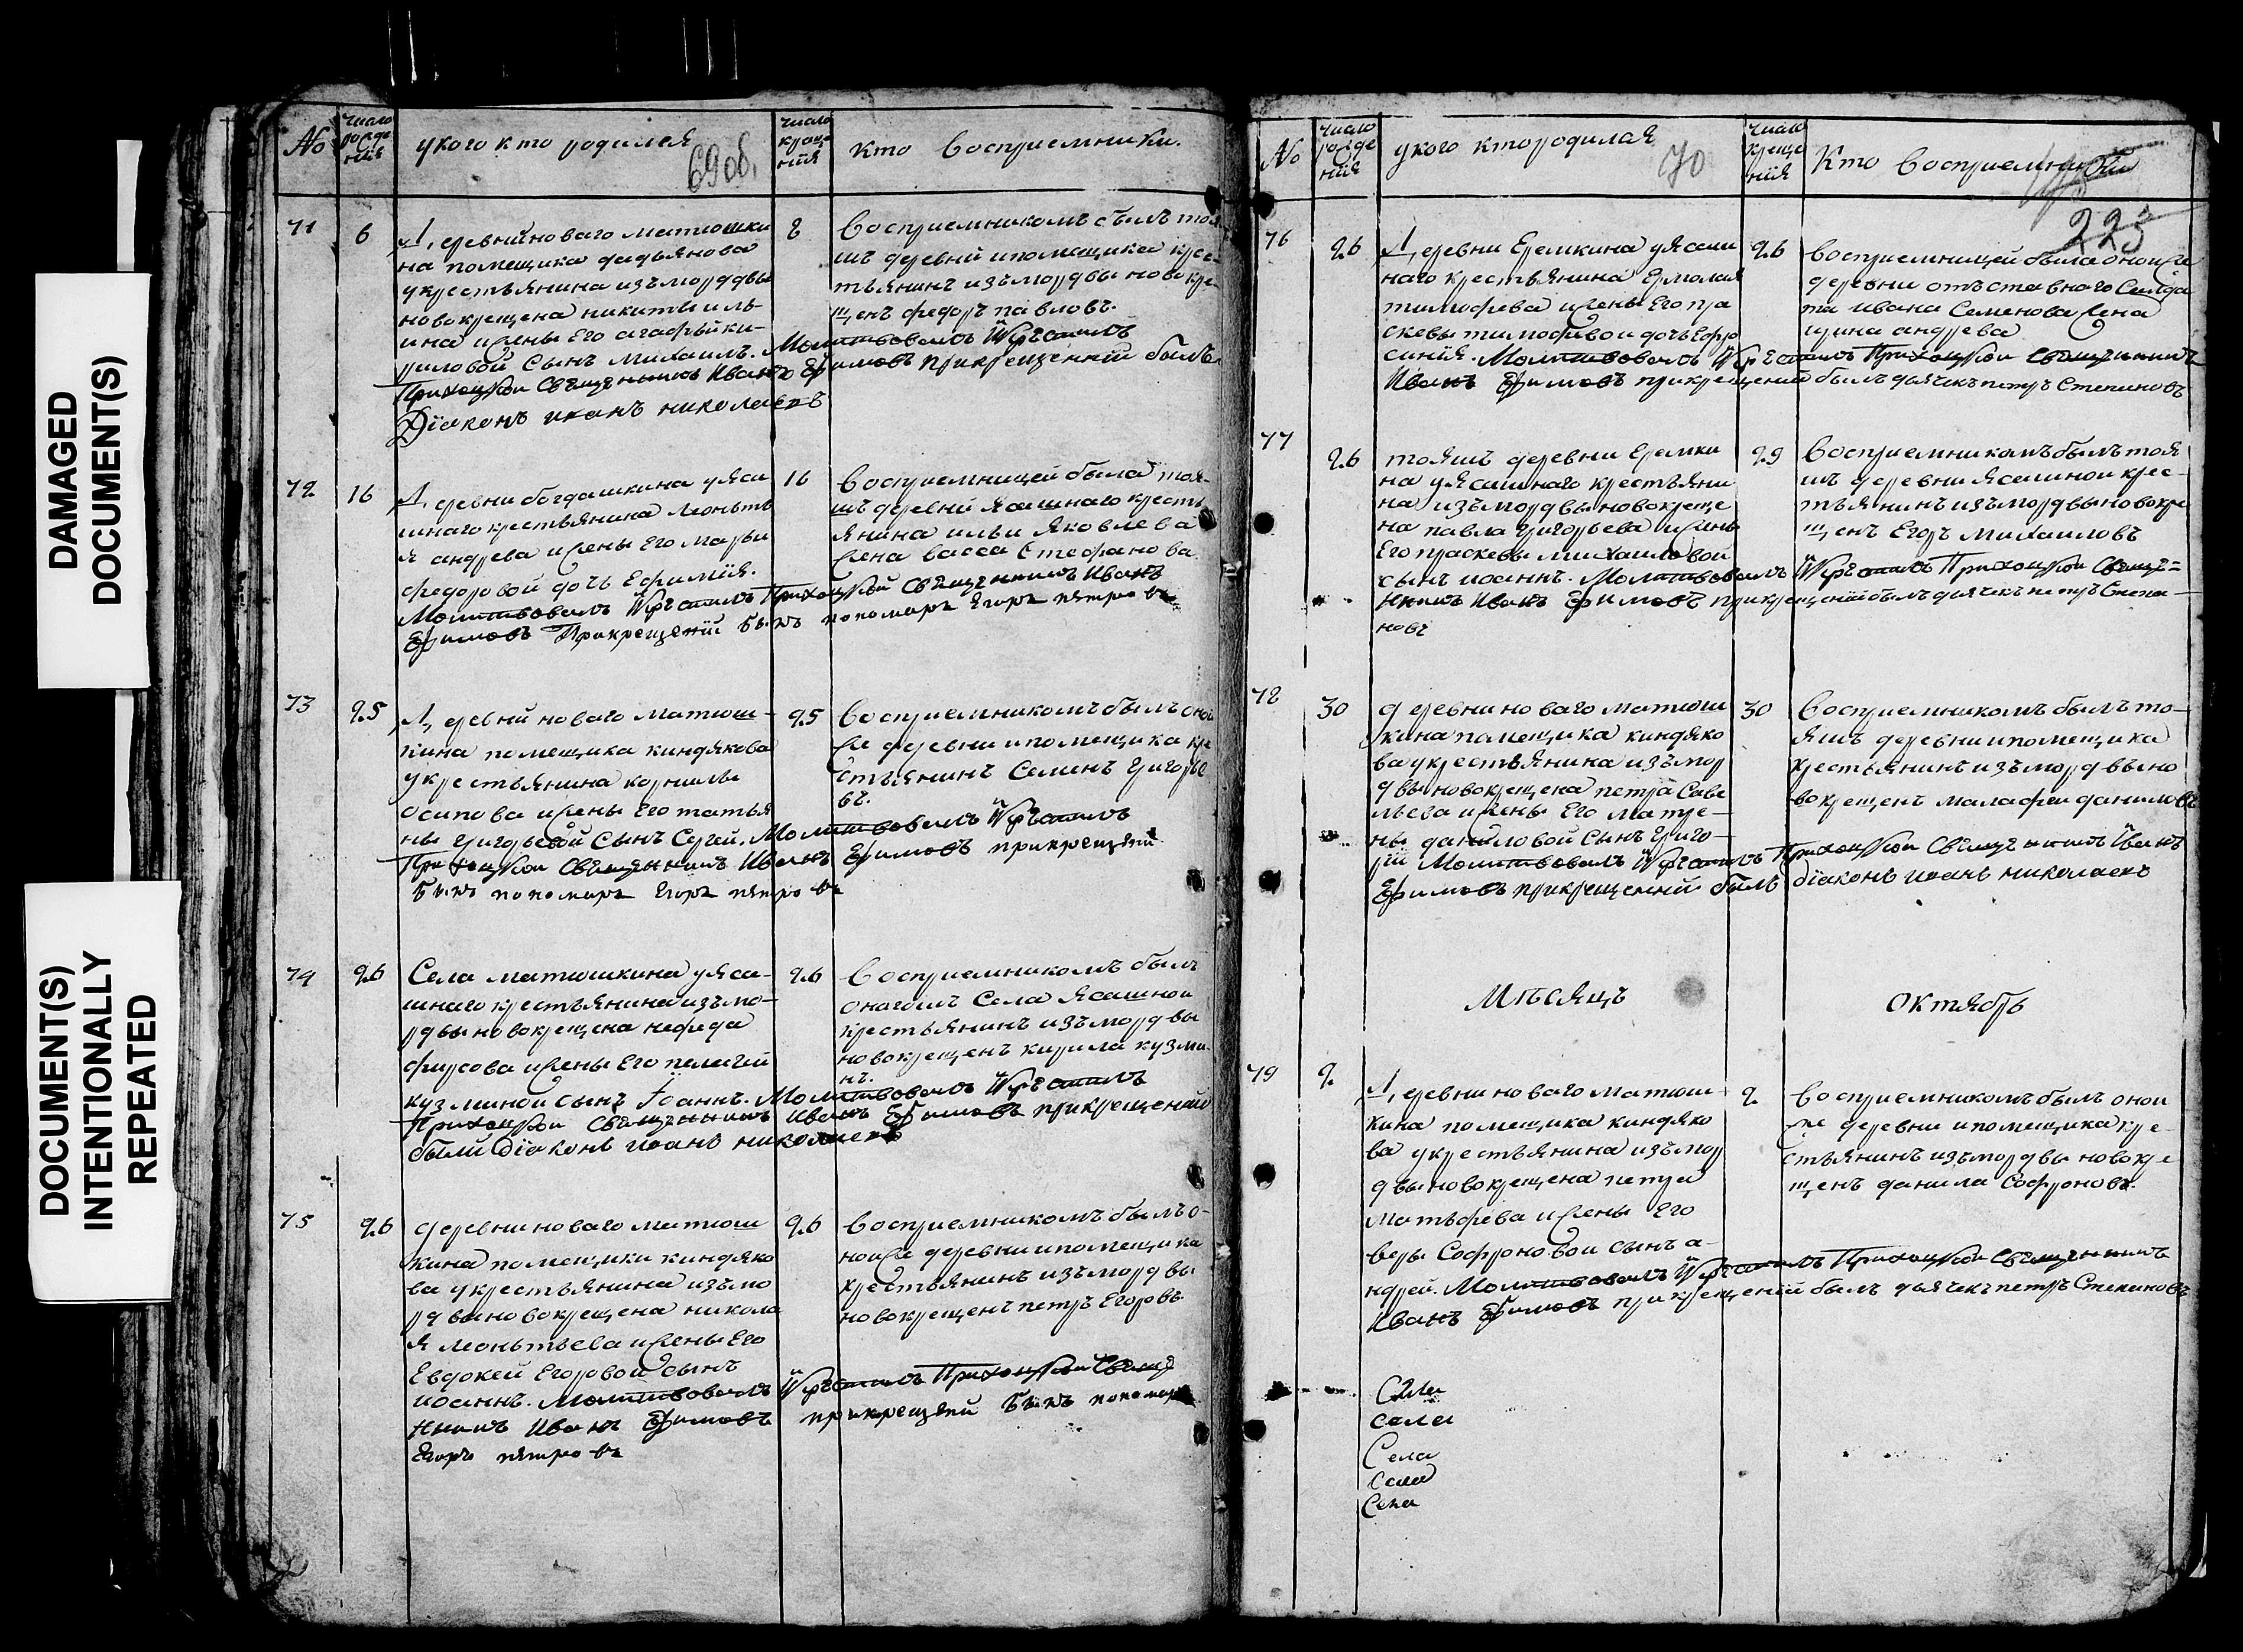 DAMAGED
DOCUMENT(S)
DOCUMENT(S)
INTENTIONALLY
REPEATED
No
число
рожде
нія
у кого кто родился
69об.
число
креще
нія
Кто восприемники.
71
6
Деревни новаго матюшки
на помещика дадьянова
у крестьянина изъ мордвы
новокрещена никиты иль
ина и жены его агафьи ки-
риловой сынъ михаилъ. Молитвовалъ и крестилъ
Приходской священникъ Иванъ Ефимовъ при крещеніи былъ
Діаконъ иванъ николаевъ
8
восприемникомъ былъ тоя
жъ деревни и помещика крес
тьянинъ изъ мордвы новокре
щенъ федоръ павловъ.
72
16
Деревни богдашкина у яса
шнаго крестьянина леонтья
андреева и жены его марьи
федоровой дочь Ефимія.
Молитвовалъ и крестилъ Приходской священникъ Иванъ
Ефимовъ При крещеніи былъ пономарь Егоръ петровъ
16
восприемницей была тоя
жъ деревни ясашнаго кресть
янина ильи Яковлева
жена васса Стефанова
73
25
Деревни новаго матюш-
кина помещика киндякова
у крестьянина корнилы
осипова и жены его татья
ны григорьевой сынъ Сергей. Молитвовалъ и крестилъ
Приходской священникъ Иванъ Ефимовъ при крещеніи
былъ пономарь Егоръ петровъ
25
восприемникомъ былъ оной
же деревни и помещика кре
стьянинъ Семенъ григорье
въ.
74
26
Села матюшкина у яса-
шнаго крестьянина изъ мо-
рдвы новокрещена нефеда
фирсова и жены его пелагеи
кузминой сынъ Іоаннъ. Молитвовалъ и крестилъ
Приходской священникъ Иванъ Ефимовъ при крещеніи
были діаконъ иоанъ николаевъ
26
восприемникомъ былъ
онагожъ Села Ясашной
крестьянинъ изъ мордвы
новокрещенъ кирила кузми-
нъ.
75
26
деревни новаго матюш
кина помещика киндяко
ва у крестьянина изъ мо
рдвы новокрещена никола
я леонтьева и жены его
Евдокеи Егоровой сынъ
иоаннъ. Молитвовалъ и крестилъ Приходской Священ
никъ Иванъ Ефимовъ при крещеніи былъ пономарь
Егоръ петровъ
26
восприемникомъ былъ о-
ной же деревни и помещика
крестьянинъ изъ мордвы
новокрещенъ петръ Егоровъ
No
число
рожде
нія
у кого кто родился
70
число
креще
нія
Кто восприемники
225
76
26
Деревни Еремкина у ясаш
наго крестьянина Ермолая
тимофеева и жены его пра
сковьи тимофеевой дочь Ефро
синія. Молитвовалъ и крестилъ Приходской священникъ
Иванъ Ефимовъ при крещеніи былъ дьячекъ петръ Степановъ
26
восприемницей была оной же
деревни отъставнаго Салда
та ивана Семенова жена
ирина андреева
77
26
тояжъ деревни Еремки
на у ясашнаго крестьяни
на изъ мордвы новокреще
на павла григорьева и жены
Его прасковьи михаиловой
сынъ иоаннъ. Молитвовалъ и крестилъ Приходской священ=
никъ Иванъ Ефимовъ при крещеніи былъ дьячекъ петръ Степа-
новъ
29
восприемникомъ былъ тоя
жъ деревни ясашной крес-
тьянинъ изъ мордвы новокре
щенъ Егоръ михаиловъ
78
30
деревни новаго матюш
кина помещика киндяко
ва у крестьянина изъ мор
двы новокрещена петра Саве
льева и жены Его матре-
ны даниловой сынъ григо-
рій Молитвовалъ и крестилъ Приходской Священникъ Иванъ
Ефимовъ при крещеніи былъ діаконъ иоанъ николаевъ
30
восприемникомъ былъ то-
яжъ деревни и помещика
крестьянинъ изъ мордвы но
вокрещенъ малафеи даниловъ
Мѣсяцъ
октябрь
79
2
Деревни новаго матюш-
кина помещика киндяко
ва у крестьянина изъ мор
двы новокрещена петра
матвеева и жены Его
веры Софроновой сынъ а-
ндрей. Молитвовалъ и крестилъ Приходской Священникъ
Иванъ Ефимовъ при крещеніи былъ дьячекъ петръ Степановъ
2
восприемникомъ былъ оной
же деревни и помещика кре-
стьянинъ изъ мордвы новокре
щенъ данила Софроновъ.
Села
села
Села
Села
Села